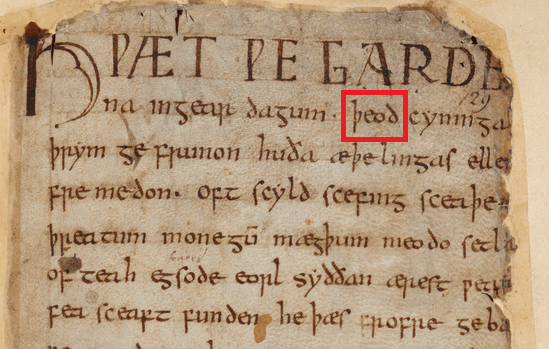 HǷÆT ǷE GARDE
129
na in gear dagum · þeod cyninga
þrym ge frunon hu ða æþelingas elle
fremedon · oft scyld scefing sceaþe
þreatum monegū mægþum meodo setla
of teah egsode eorl syððan ærest
fea sceaft funden he þæs frofre geba